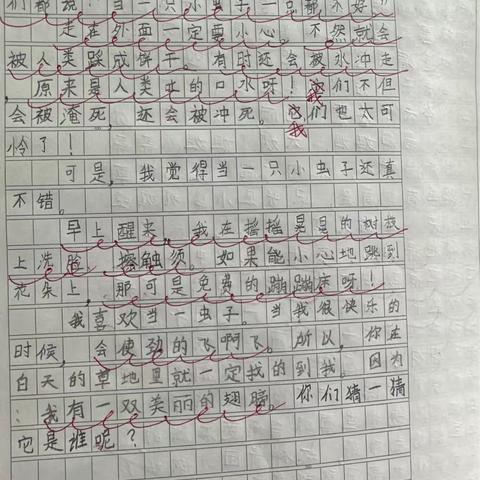 们都说："当一只小虫子一点都不好"
走在外面一定要小心。不然就会
被人类踩成饼子。有时还会被水冲走
，原来是人类吐的口水呀！它们不但
我
会被淹死，还会被冲死。它们也太可
我
怜了！
可是，我觉得当一只小虫子还真
不错。
早上醒来，我在摇摇晃晃的树枝
上洗脸，擦触须。如果能小心地跳到
花朵上，那可是免费的蹦蹦床呀！
我喜欢当一虫子。当我很快乐的
时候，会使劲的飞啊飞。所以，你在
白天的草地里就一定找的到我。因为
：我有一双美丽的翅膀。你们猜一猜
它是谁呢？